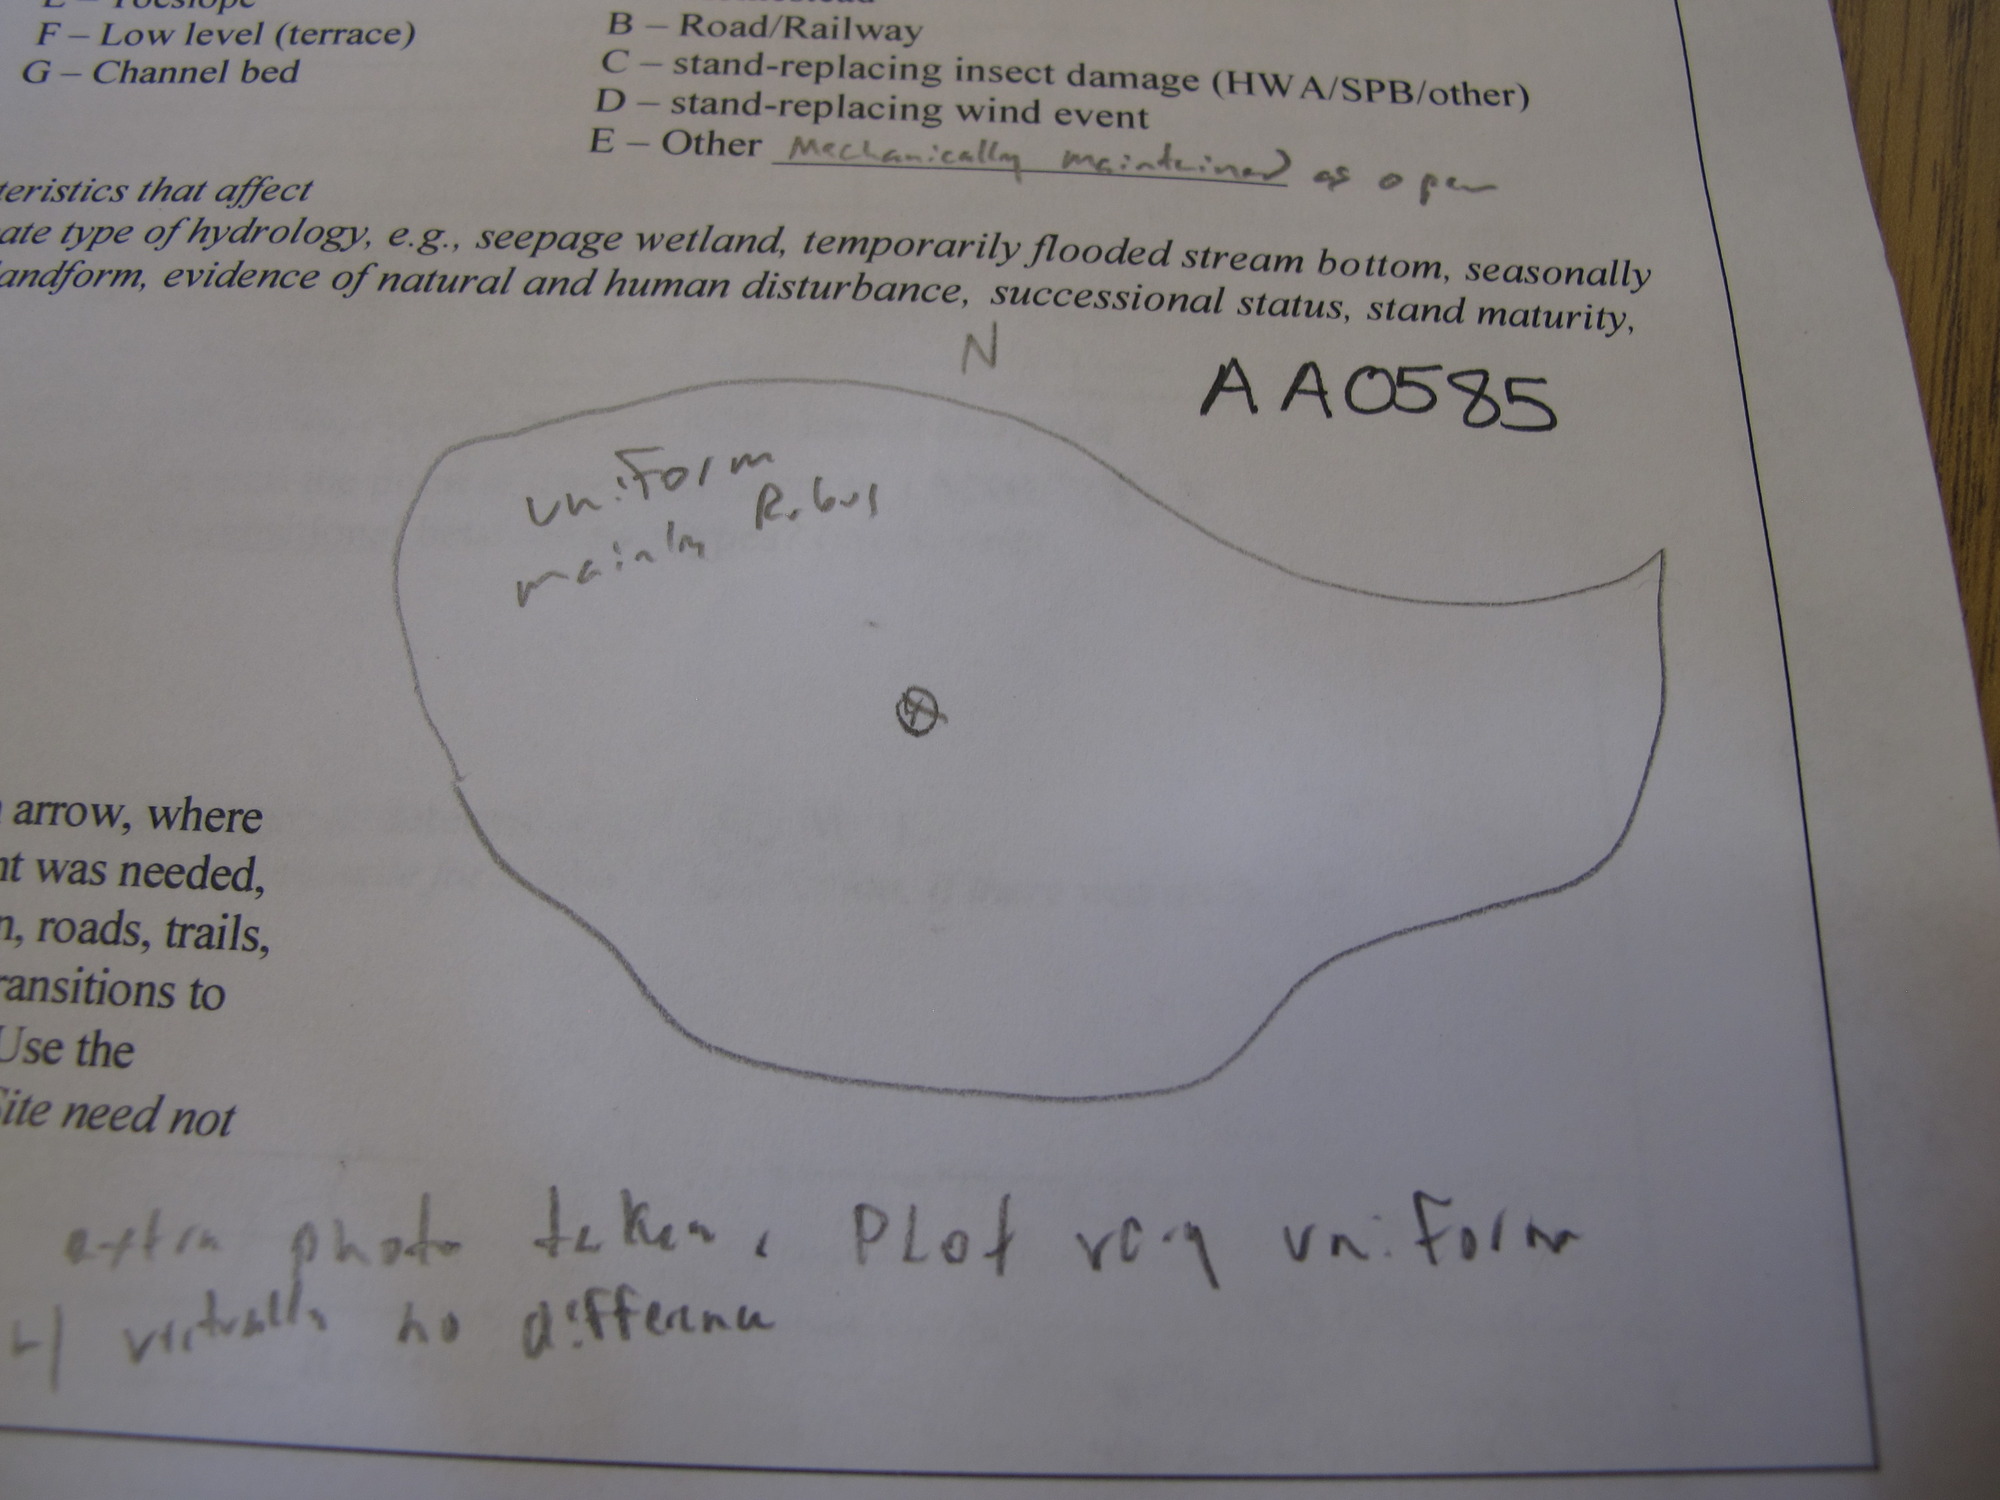 E – Toeslope
F – Low level (terrace)
G – Channel bed
B – Road/Railway
C – stand-replacing insect damage (HWA/SPB/other)
D – stand-replacing wind event
E – Other Mechanically maintained as open
teristics that affect
ate type of hydrology, e.g., seepage wetland, temporarily flooded stream bottom, seasonally
andform, evidence of natural and human disturbance, successional status, stand maturity,
N
AA0585
uniform
mainly Rubus
arrow, where
nt was needed,
n, roads, trails,
ransitions to
Use the
Site need not
extra photo taken. PLot very uniform
w/ virtually no difference